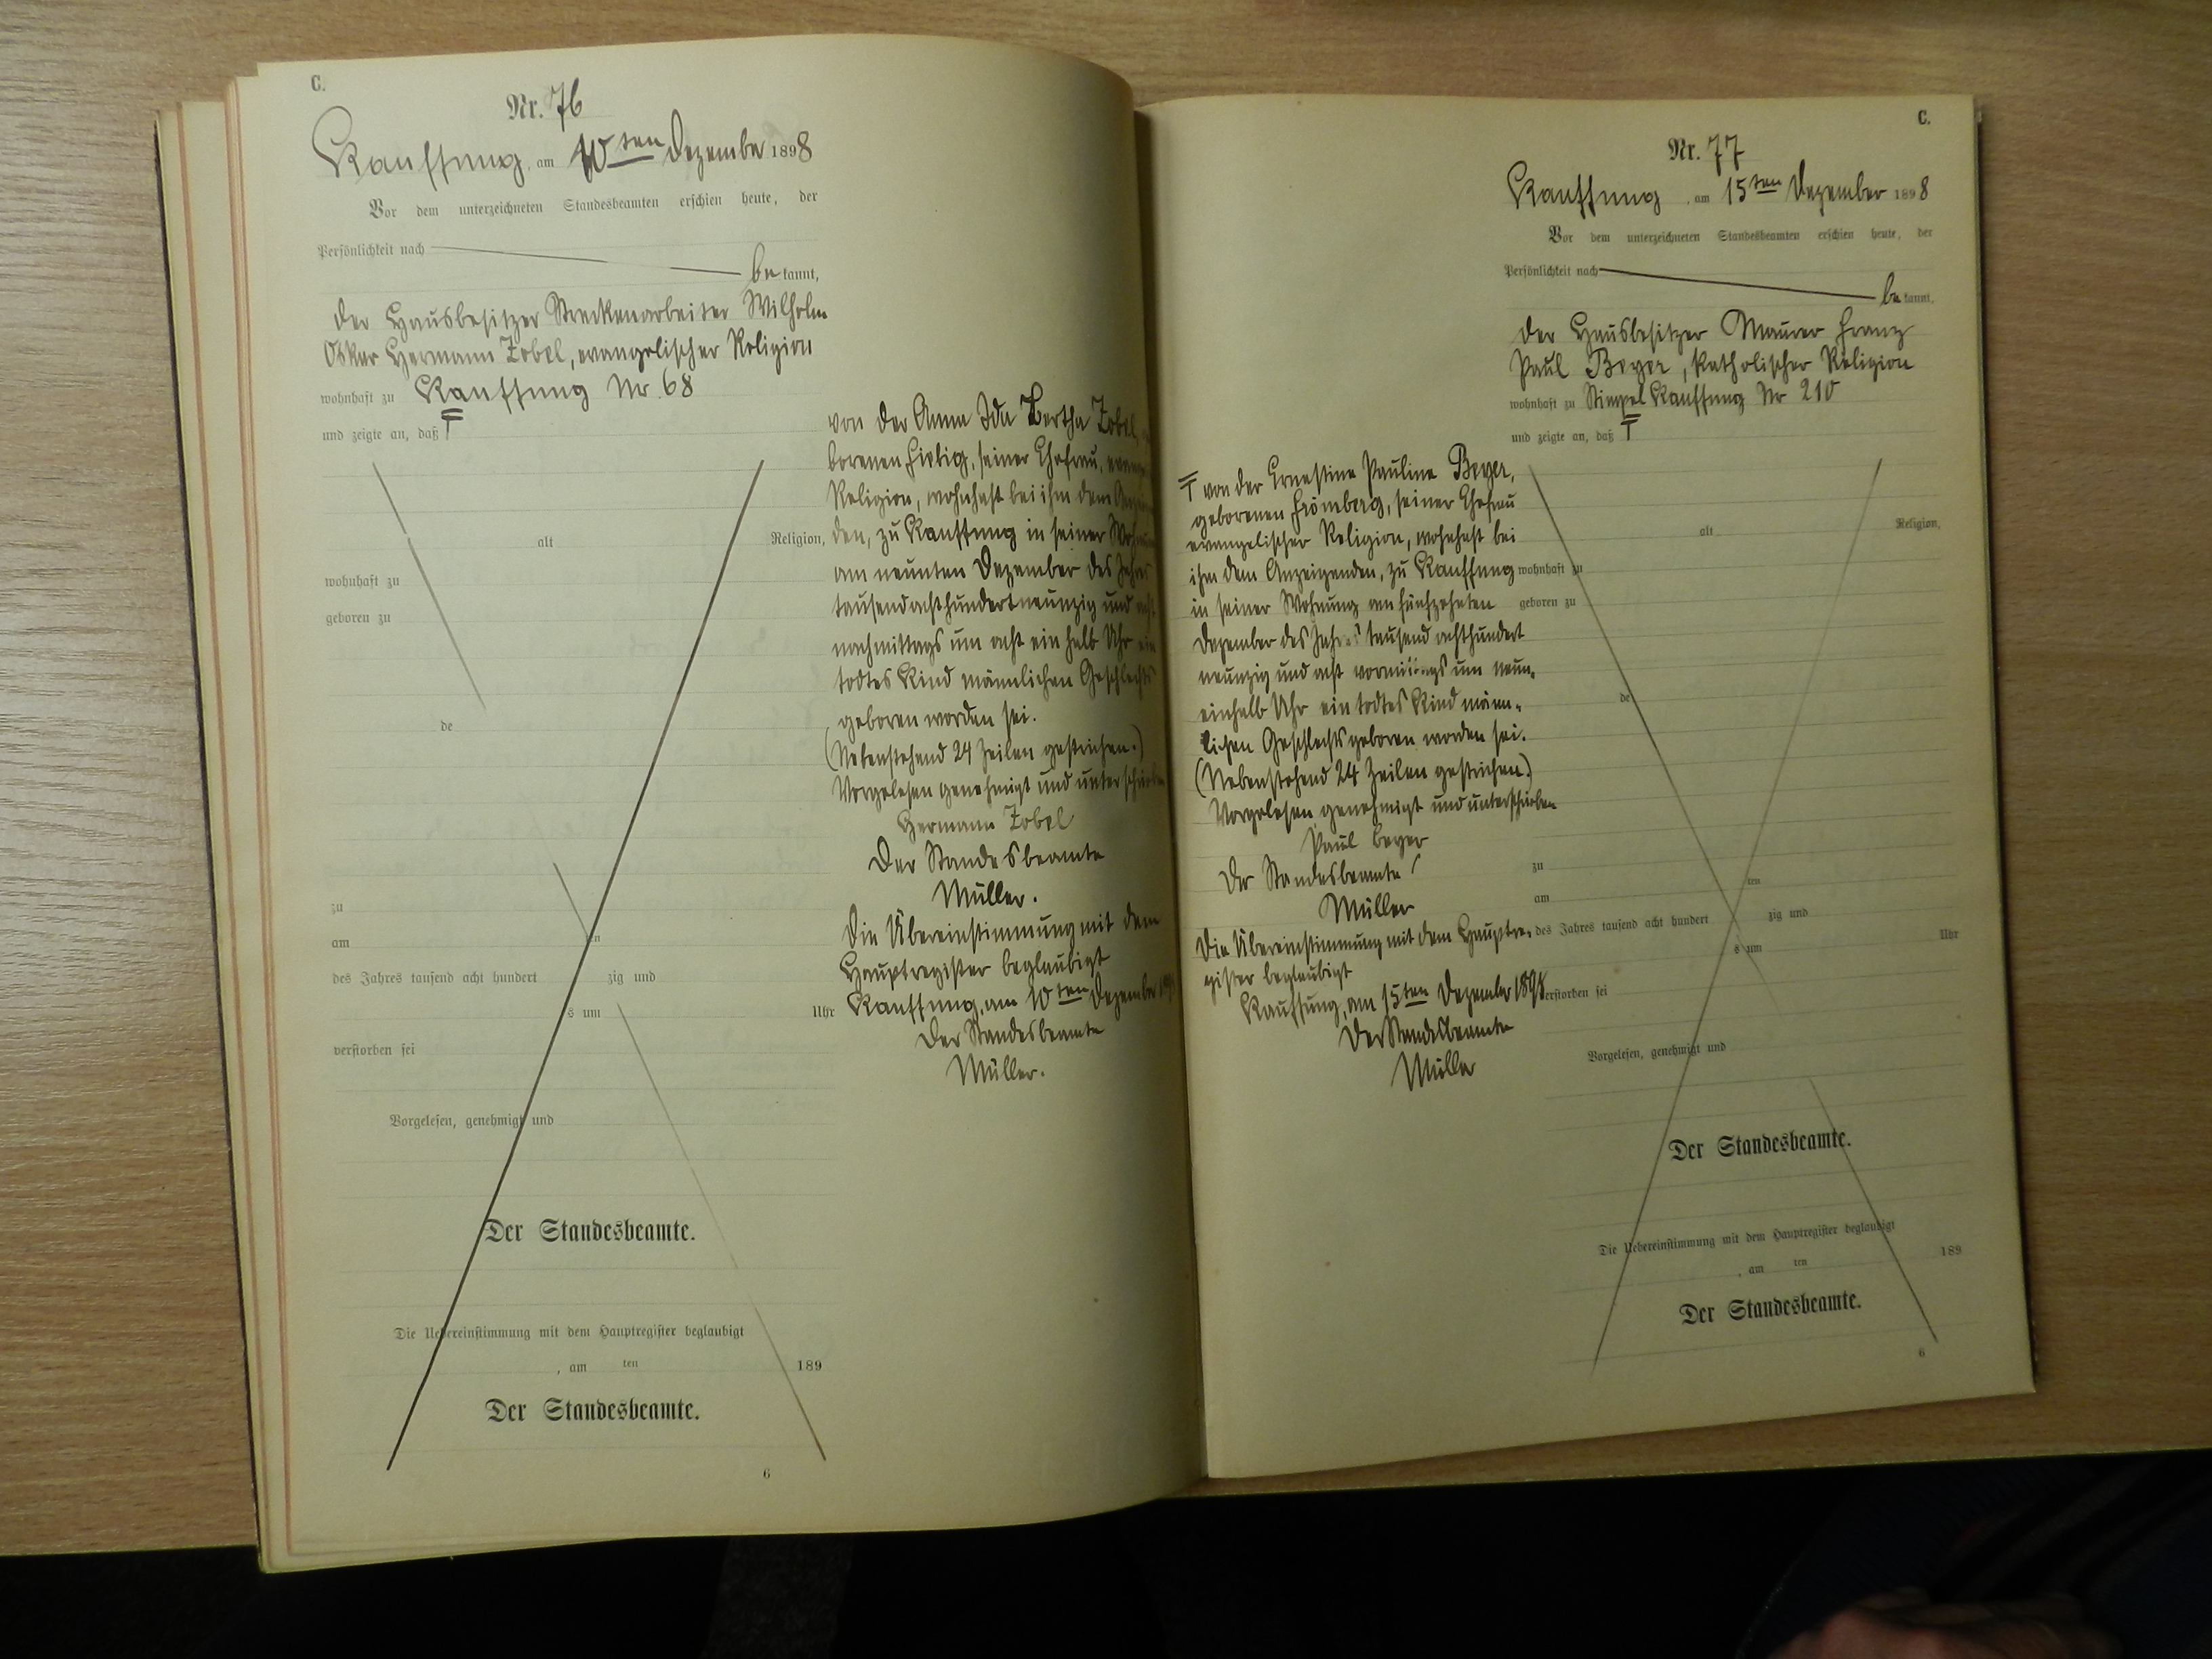 C.
Nr. 76
Kauffung, am 10ten Dezember 1898
Vor dem unterzeichneten Standesbeamten erschien heute, der
Persönlichkeit nach
be kannt,
der Hausbesitzer Streckenarbeiter Wilhelm
Oskar Hermann Zobel, evangelischer Religion
wohnhaft zu Kauffung Nr 68
und zeigte an, daß
von der Anna Ida Bertha Zobel
borenen Fiebig, seiner Ehefrau,
Religion, wohnhaft bei ihm dem
den, zu Kauffung in seiner
am neunten Dezember des
tausendachthundertneunzig und
nachmittags um acht ein halb Uhr ein
todtes Kind männlichen Geschlechts
geboren worden sei.
(Nebenstehend 24 Zeilen gestrichen.)
Vorgelesen genehmigt und unterschrieben
Hermann Zobel
Der Standesbeamte
Müller.
Die Übereinstimmung mit dem
Hauptregister beglaubigt
Kauffung, am 10ten Dezember
Der Standesbeamte
Müller.
alt Religion,
wohnhaft zu
geboren zu
de
zu
am ten
des Jahres tausend acht hundert zig und
s um Uhr
verstorben sei
Vorgelesen, genehmigt und
Der Standesbeamte.
Die Uebereinstimmung mit dem Hauptregister beglaubigt
, am ten 189
Der Standesbeamte.
6
C.
Nr. 77
Kauffung, am 15ten Dezember 1898
Vor dem unterzeichneten Standesbeamten erschien heute, der
Persönlichkeit nach
be kannt,
der Hausbesitzer Maurer Franz
Paul Beyer, katholischer Religion
wohnhaft zu Stimpel Kauffung Nr 210
und zeigte an, daß
von der Ernestine Pauline Beyer,
geborenen Frömberg, seiner Ehefrau
evangelischer Religion, wohnhaft bei
ihm dem Anzeigenden, zu Kauffung
in seiner Wohnung am fünfzehnten
Dezember des Jahres tausend achthundert
neunzig und acht vormittags um neun-
einhalb Uhr ein todtes Kind männ-
lichen Geschlechts geboren worden sei.
(Nebenstehend 24 Zeilen gestrichen.)
Vorgelesen genehmigt und unterschrieben
Paul Beyer
Der Standesbeamte
Müller
Die Übereinstimmung mit dem Hauptre-
gister beglaubigt
Kauffung, am 15ten Dezember 1898
Der Standesbeamte
Müller
alt Religion,
wohnhaft zu
geboren zu
de
zu
am ten
des Jahres tausend acht hundert zig und
s um Uhr
verstorben sei
Vorgelesen, genehmigt und
Der Standesbeamte.
Die Uebereinstimmung mit dem Hauptregister beglaubigt
, am ten 189
Der Standesbeamte.
6